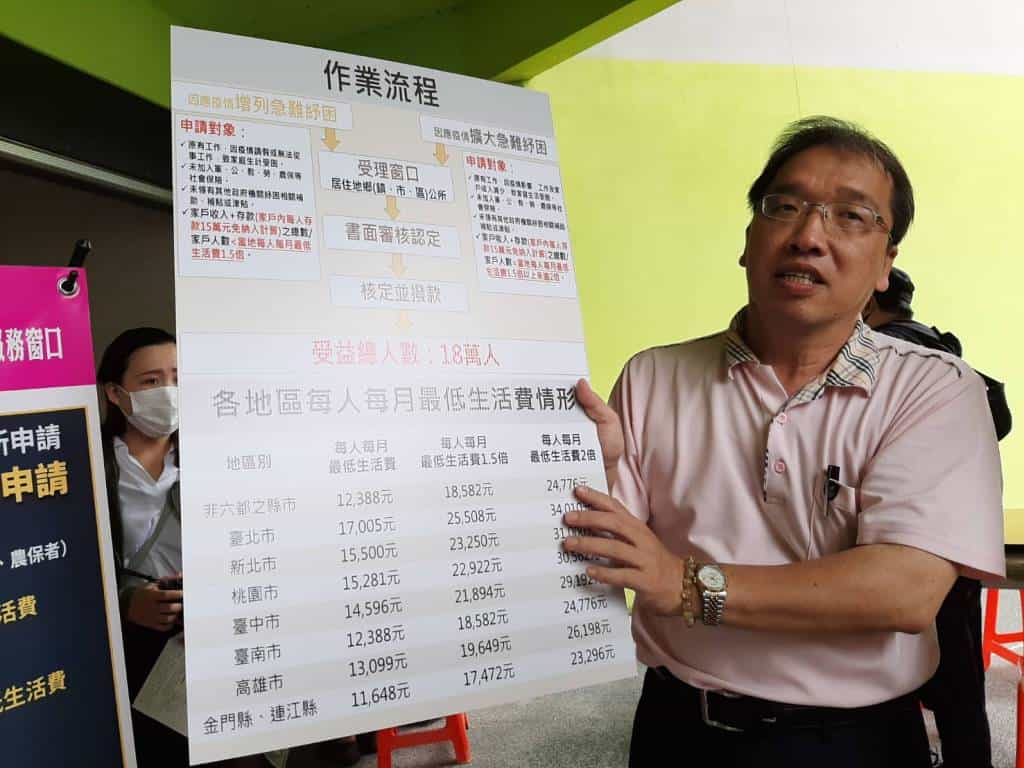 作業流程
因應疫情增列急難紓困
因應疫情擴大急難紓困
申請對象：
✓原有工作，因疫情請假或無法從
事工作，致家庭生計受困。
✓未加入軍、公、教、勞、農保等
社會保險。
✓未領有其他政府機關紓困相關補
助、補貼或津貼。
✓家戶收入+存款(家戶內每人存
款15萬元免納入計算)之總數/
家戶人數<當地每人每月最低
生活費1.5倍。
受理窗口
居住地鄉(鎮、市、區)公所
書面審核認定
核定並撥款
申請對象：
✓未加入軍、公、教、勞、農保等社
會保險。
✓未領有其他政府機關紓困相關補助
、補貼或津貼。
✓家戶收入+存款(家戶內每人存
款15萬元免納入計算)之總數/
家戶人數<當地每人每月最低
生活費1.5倍以上未達2倍。
受益總人數：18萬人
各地區每人每月最低生活費情形
地區別
每人每月
最低生活費
每人每月
最低生活費1.5倍
每人每月
最低生活費2倍
非六都之縣市 12,388元 18,582元 24,776元
臺北市 17,005元 25,508元
新北市 15,500元 23,250元
桃園市 15,281元 22,922元
臺中市 14,596元 21,894元
臺南市 12,388元 18,582元 24,776元
高雄市 13,099元 19,649元 26,198元
金門縣、連江縣 11,648元 17,472元 23,296元
服務窗口
所申請
申請
、農保者）
活費
生活費